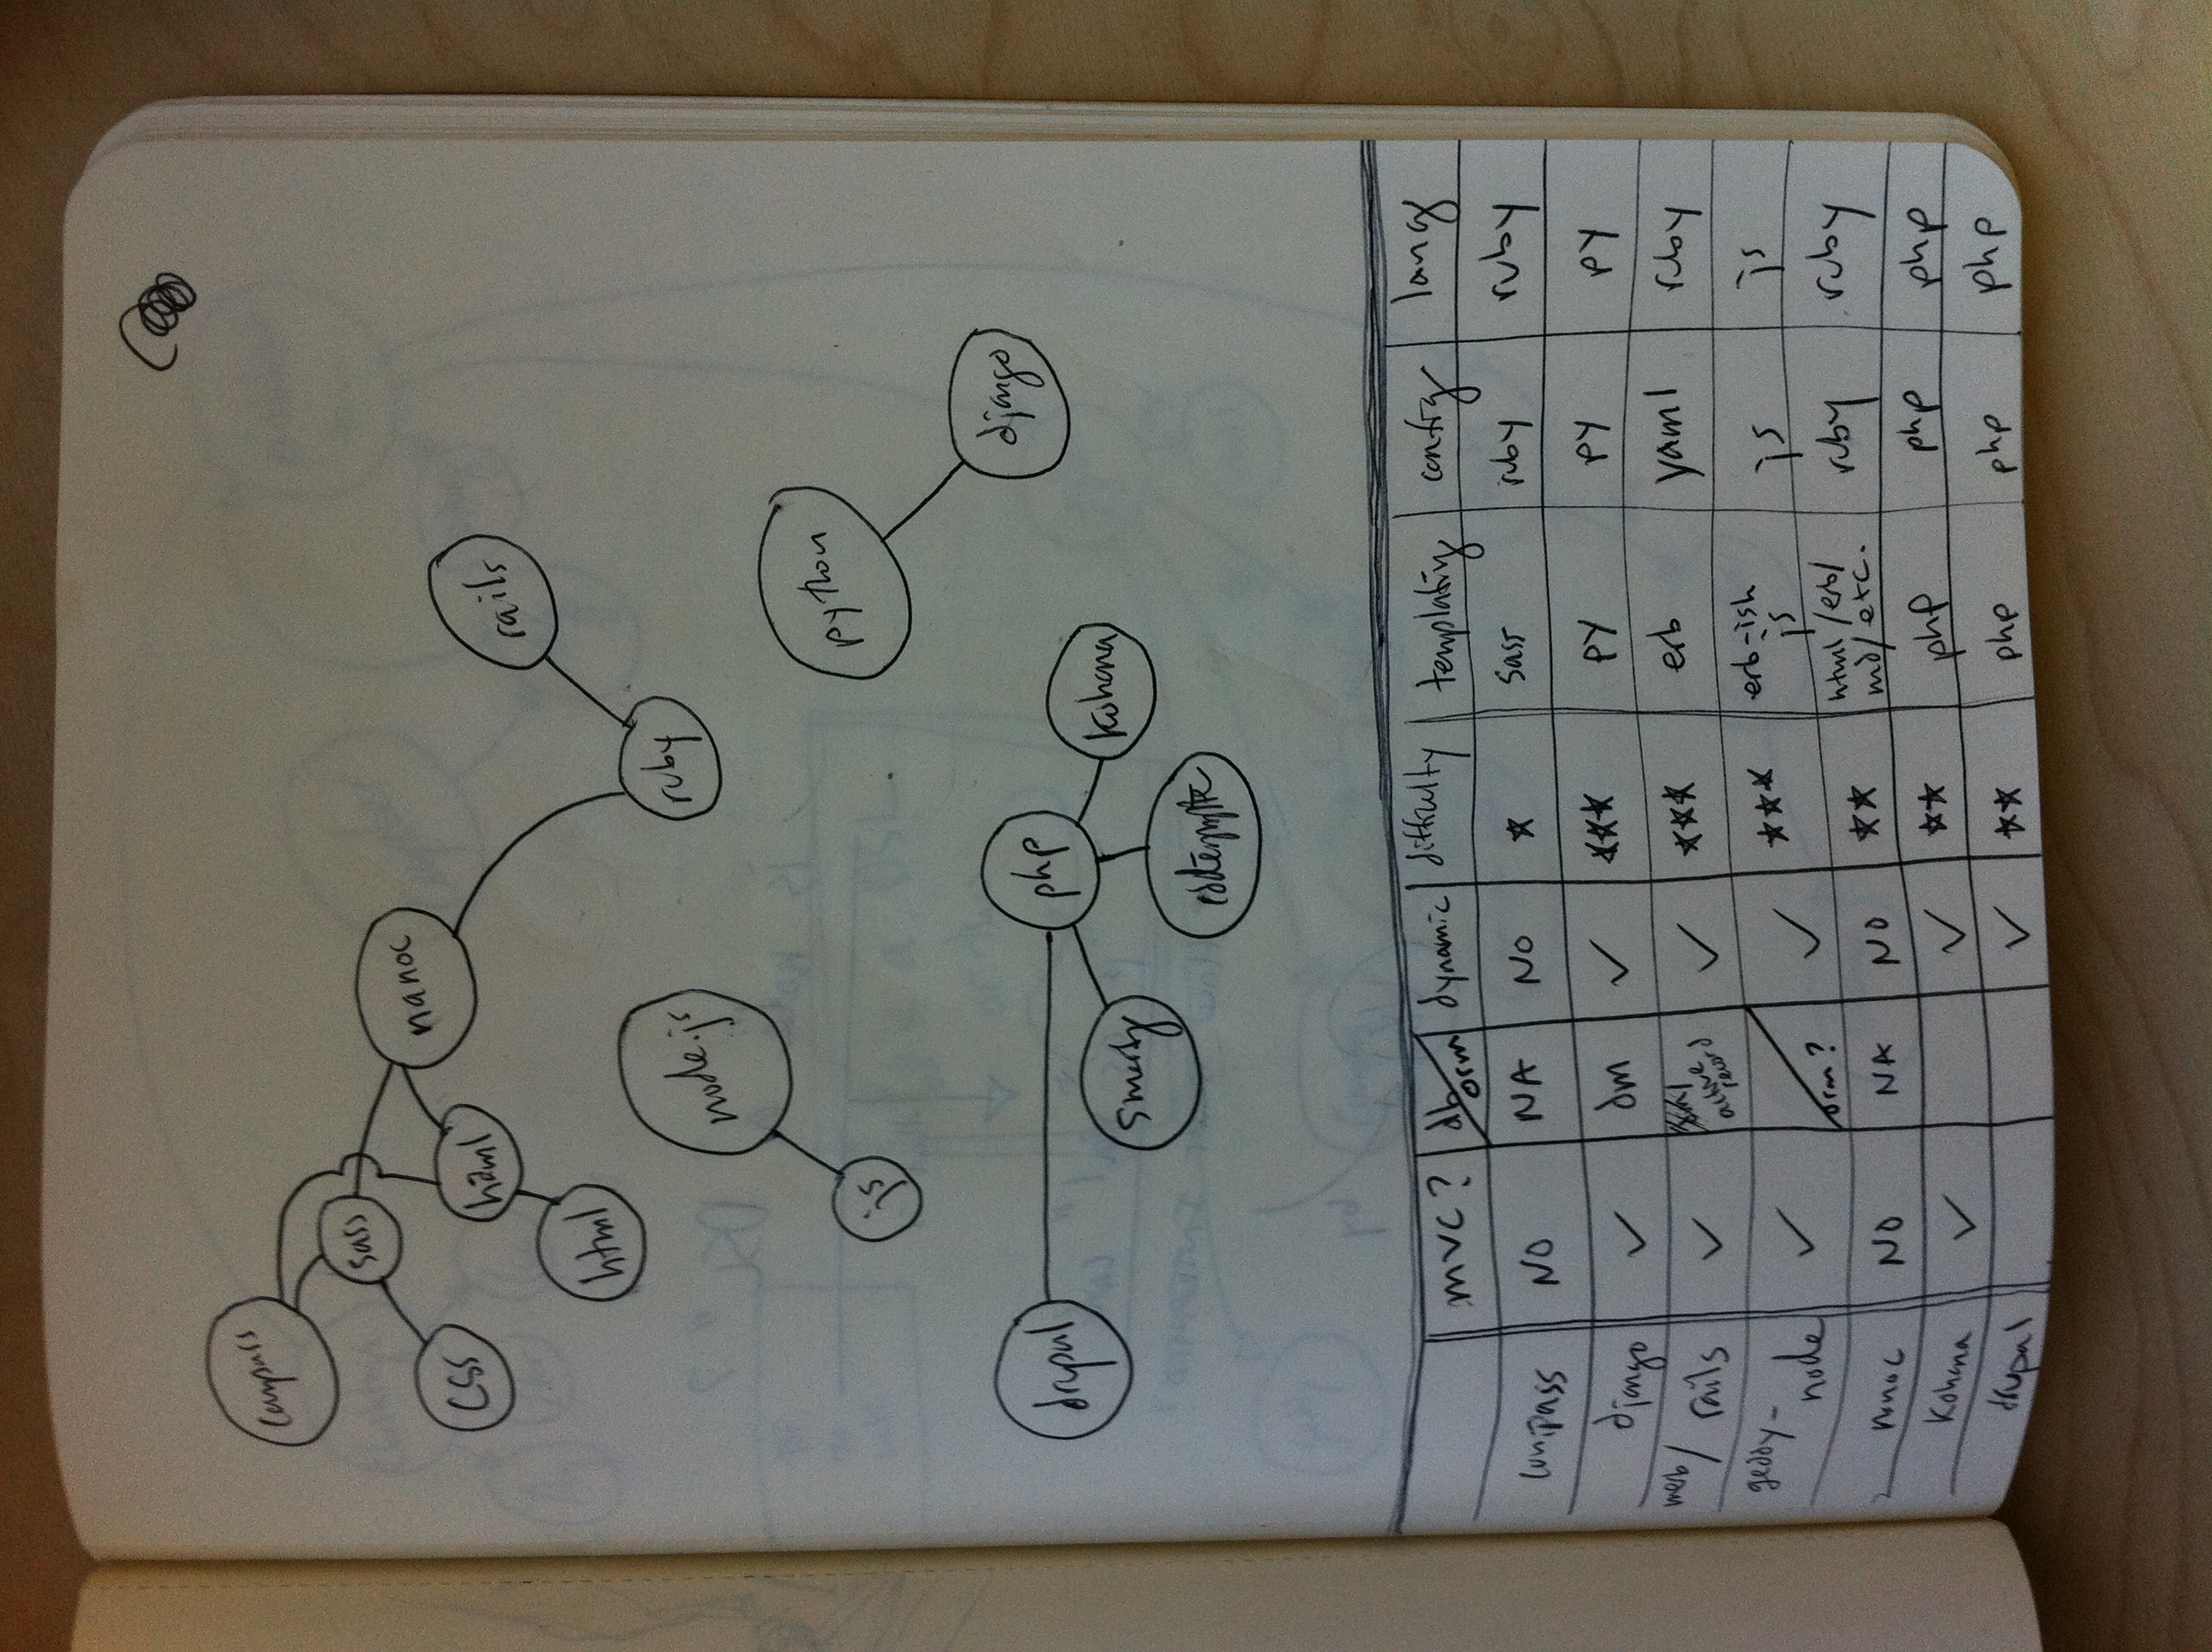 compass
css
sass
html
haml
nanoc
ruby
rails
js
node.js
python
django
drupal
smarty
php
kohana
mvc? db/orm dynamic difficulty templating config lang
compass NO NA NO * sass ruby ruby
django ✓ dm ✓ *** py py py
merb/rails ✓ active record ✓ *** erb yaml ruby
geddy-node ✓ orm? ✓ *** erb-ish js js js
nanoc NO NA NO ** html/erb/md/etc. ruby ruby
kohana ✓ ✓ ** php php php
drupal ✓ ** php php php